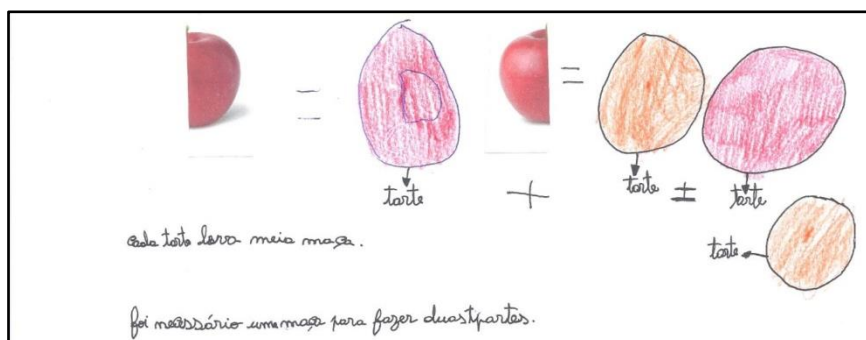 = =
tarte + tarte ± tarte
tarte
cada tarte leva meia maça.
foi necessário uma maça para fazer duastpartes.